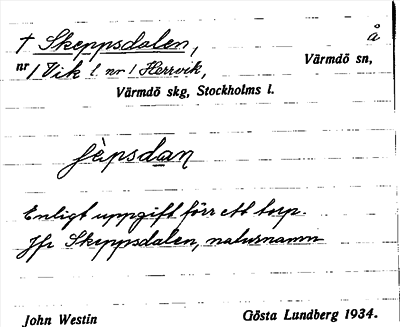 † Skeppsdalen, å
nr 1 Vik l. nr 1 Herrvik, Värmdö sn,
Värmdö skg, Stockholms l.
ʃèpsdan
Enligt uppgift förr ett torp.
Jfr Skeppsdalen, naturnamn
John Westin Gösta Lundberg 1934.